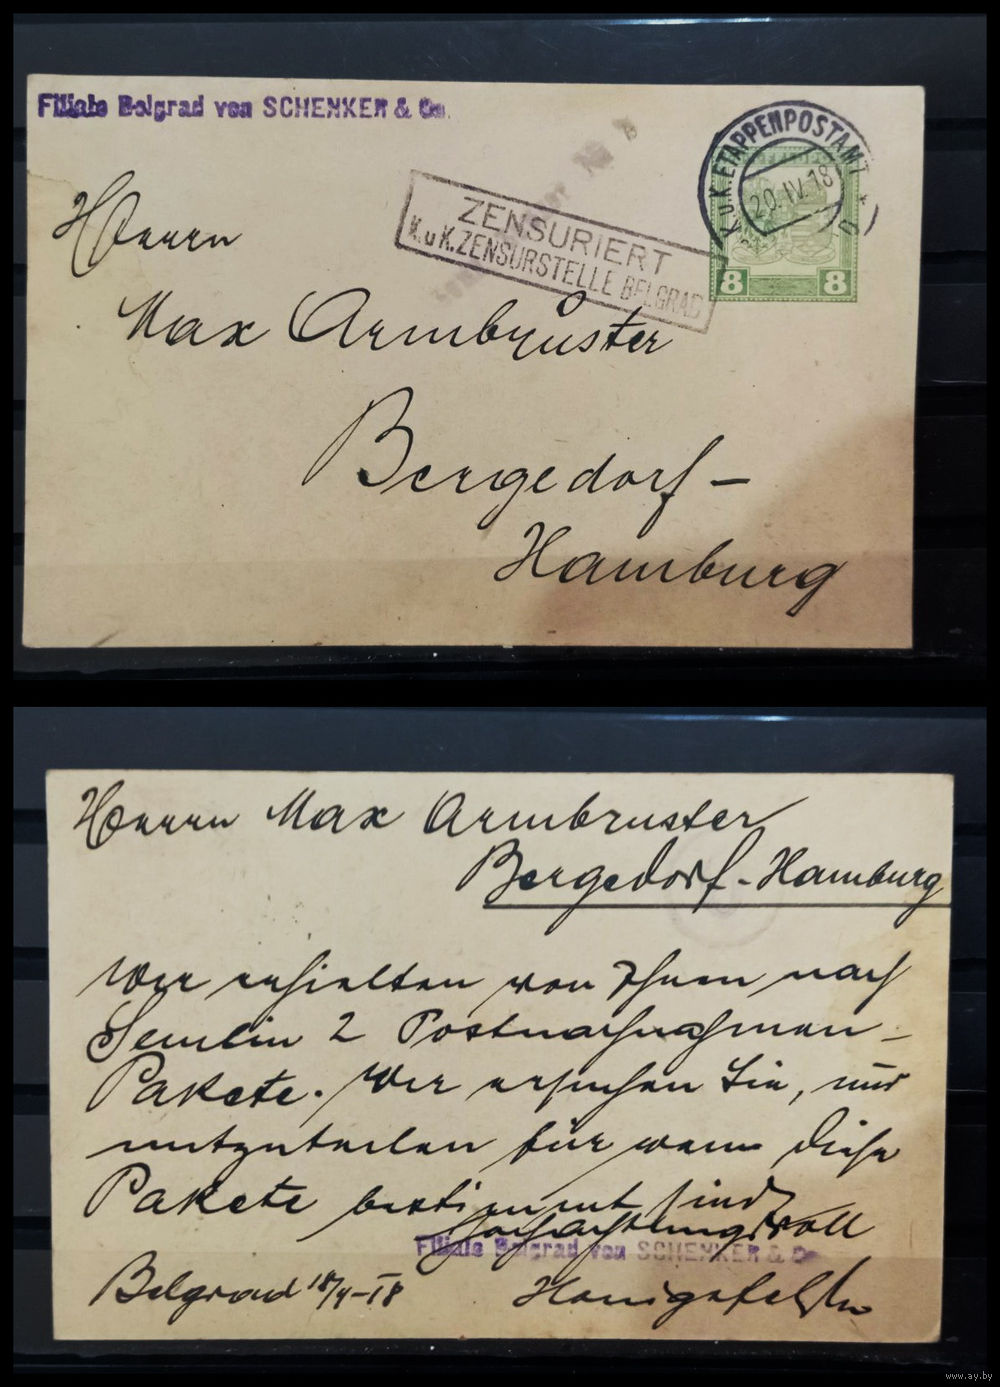 Filiale Belgrad von SCHENKER & Co.
K.u.K. ETAPPENPOSTAMT
20. IV. 18
8 8
ZENSURIERT
K.u.K. ZENSURSTELLE BELGRAD
Herrn
Max Armbruster
Bergedorf-
Hamburg
Herrn Max Armbruster
Bergedorf-Hamburg
Wir erhielten von Ihnen nach
Semlin 2 Postnachnahmen-
Pakete. Wir ersuchen Sie, uns
mitzuteilen für wem diese
Pakete bestimmt sind
Hochachtungsvoll
Filiale Belgrad von SCHENKER & Co.
Belgrad 18/4-18
www.ay.by